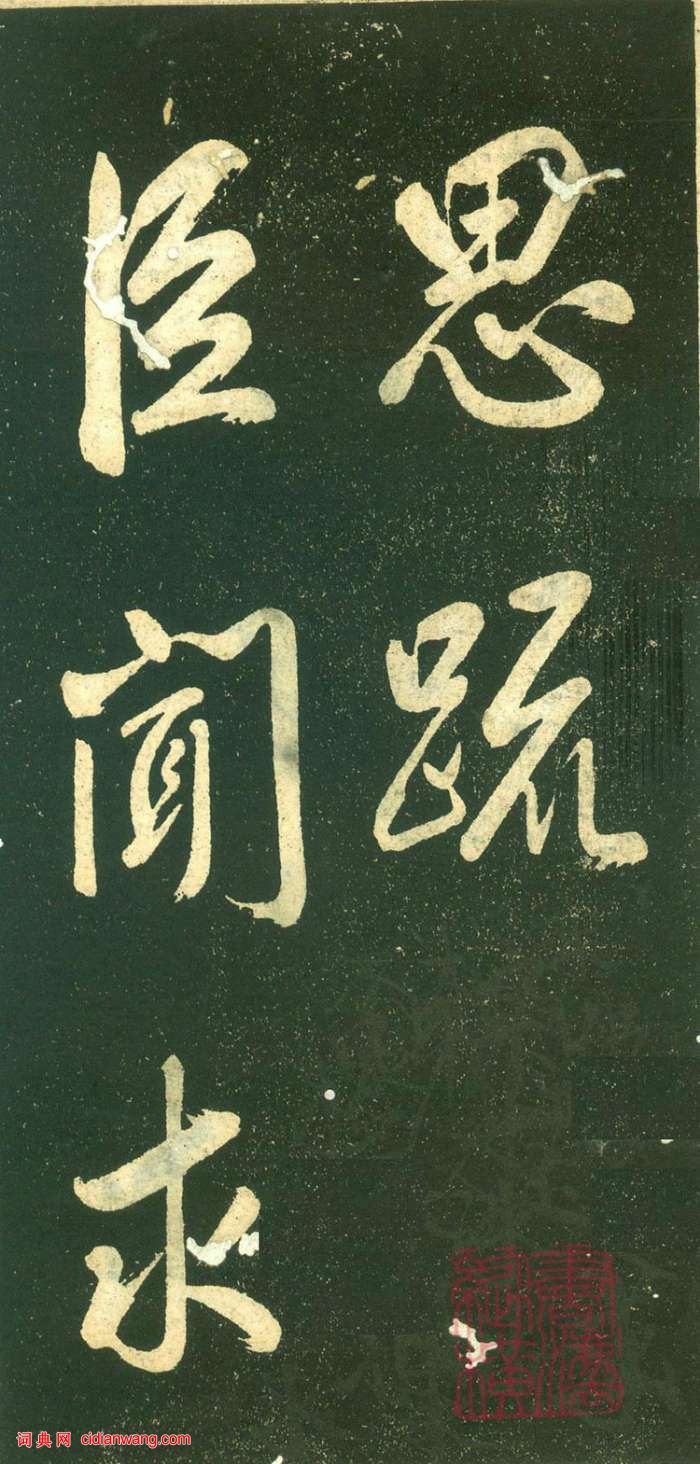 思疏
臣闻求
词典网 cidianwang.com